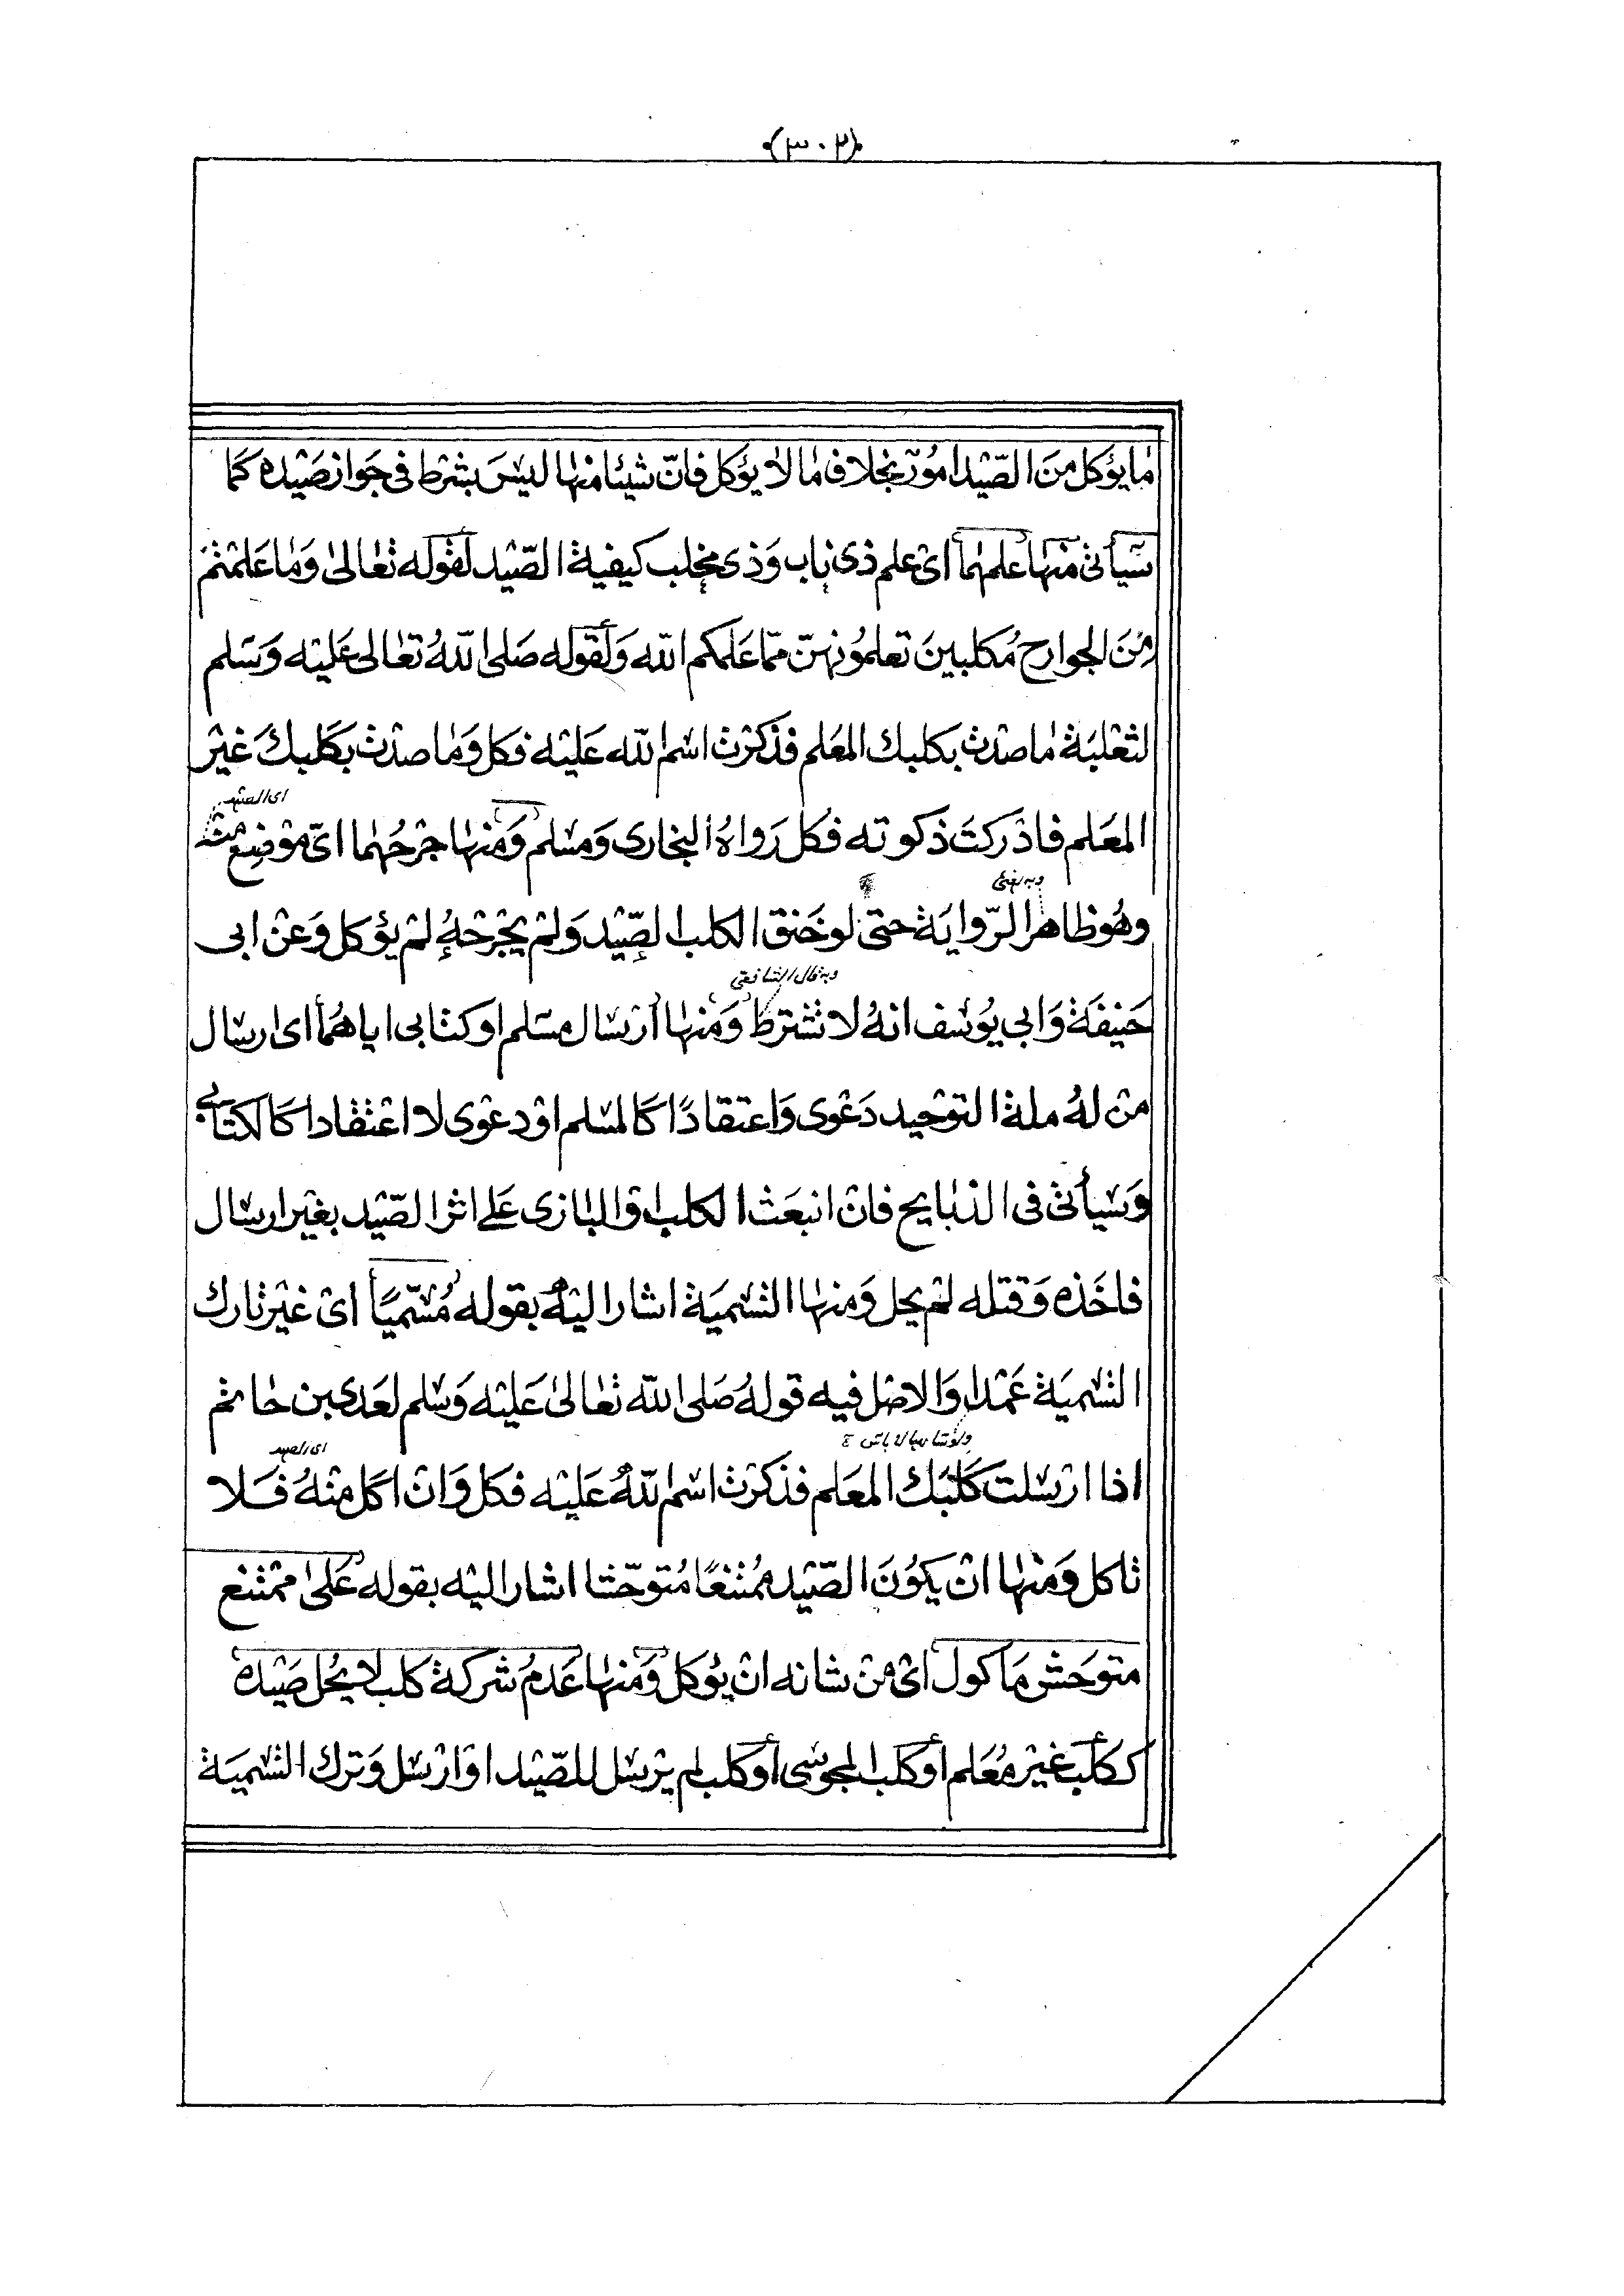 (٣٠٢)
مٰا يؤكل مِنَ الصّيْدا مُورٌ بخلاف مٰا لاٰ يؤكل فانّ شيئا منهٰا ليسَ بشرْط فى جَواز صَيْده كَمٰا
سَيَأتى منهٰا علمهٰمٰا اىْ علم ذى نٰاب وَذى مخلب كيفية الصّيْد لقوْله تعٰالىٰ وَمٰا عَلمْتمْ
مِنَ الجوارح مُكلبينَ تعلمُونهنّ ممّا عَلمكم الله وَلقوْله صَلى اللهُ تعٰالى عَليْه وَسَلم
لثعْلبَة مٰا صدْت بكلبك المعَلم فذكرْت اسْم الله عَليْه فكل وَمٰا صدْت بكَلبكَ غيْر
اى الصيد
المعَلم فادْركتَ ذكوته فكل رَواهُ البخارى وَمسْلم وَمنهٰا جرْحُهمٰا اىّ موْضع منْه
وبه يفتى
وهُو ظاهر الرّوايَة حتى لو خَنق الكلب الصّيْد وَلمْ يجْرحْهُ لمْ يؤكل وَعنْ ابى
وبه قال الشافعى
حَنيفَة وَابي يوُسف انهُ لا تشْترط وَمنهٰا ارْسٰال مسْلم او كتابى اياهُمٰا اى ارسال
منْ لهُ ملة التوْحيد دَعْوى وَاعتقادًا كَالمسْلم اوْ دعْوى لا اعْتقادا كَالكتابي
وَسَيأتى فى الذبٰايح فانْ انبَعَث الكلب اوْ البٰازى عَلى اثر الصّيْد بغيْر ارسٰال
فاخَذه وَقتله لمْ يحل وَمنهٰا التسْميَة اشار اليْهُ بقوله مُسَمّيًا اىْ غيْر تٰارك
التسْميَة عَمْدا وَالاصْل فيه قولهُ صَلى الله تعٰالىٰ عَليْه وَسَلم لعَدى بن حٰاتم
اى الصيد
اذا ارْسَلت كَلبَك المعَلم فذكرْت اسْم اللهُ عَليْه فكل وَانْ اكل منْهُ فَلا
تاكل وَمنهٰا انْ يكوُنَ الصّيْد ممْتنعًا مُتوحّشا اشار اليْه بقوله عَلىٰ ممْتنع
متوحَش مَاكول اىْ منْ شانه انْ يؤكل وَمنهٰا عَدمُ شركة كلب لا يحُل صَيْدهُ
ككلب غيْر مُعَلم أو كلب المجوسى أو كلب لم يرْسل للصّيْد اوْ ارْسل وَترك التسْميَة